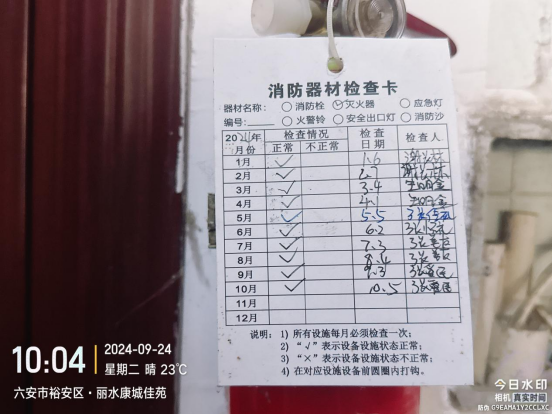 消防器材检查卡
器材名称： ○消防栓 ✓灭火器 ○应急灯
编号：____ ○火警铃 ○安全出口灯 ○消防沙
2024年 检查情况 检查 检查人
月份 正常 不正常 日期
1月 ✓ 1.6
2月 ✓ 2.7
3月 ✓ 3.4
4月 ✓ 4.1
5月 ✓ 5.5
6月 ✓ 6.2
7月 ✓ 7.3
8月 ✓ 8.4
9月 ✓ 9.3
10月 ✓ 10.5
11月
12月
说明： 1) 所有设施每月必须检查一次；
2) “√”表示设备设施状态正常；
3) “×”表示设备设施状态不正常；
4) 在对应设施设备前圆圈内打钩。
10:04 2024-09-24
星期二 晴 23℃
六安市裕安区·丽水康城佳苑
今日水印
相机 真实时间
防伪 G9EAMA1Y2CCLXC